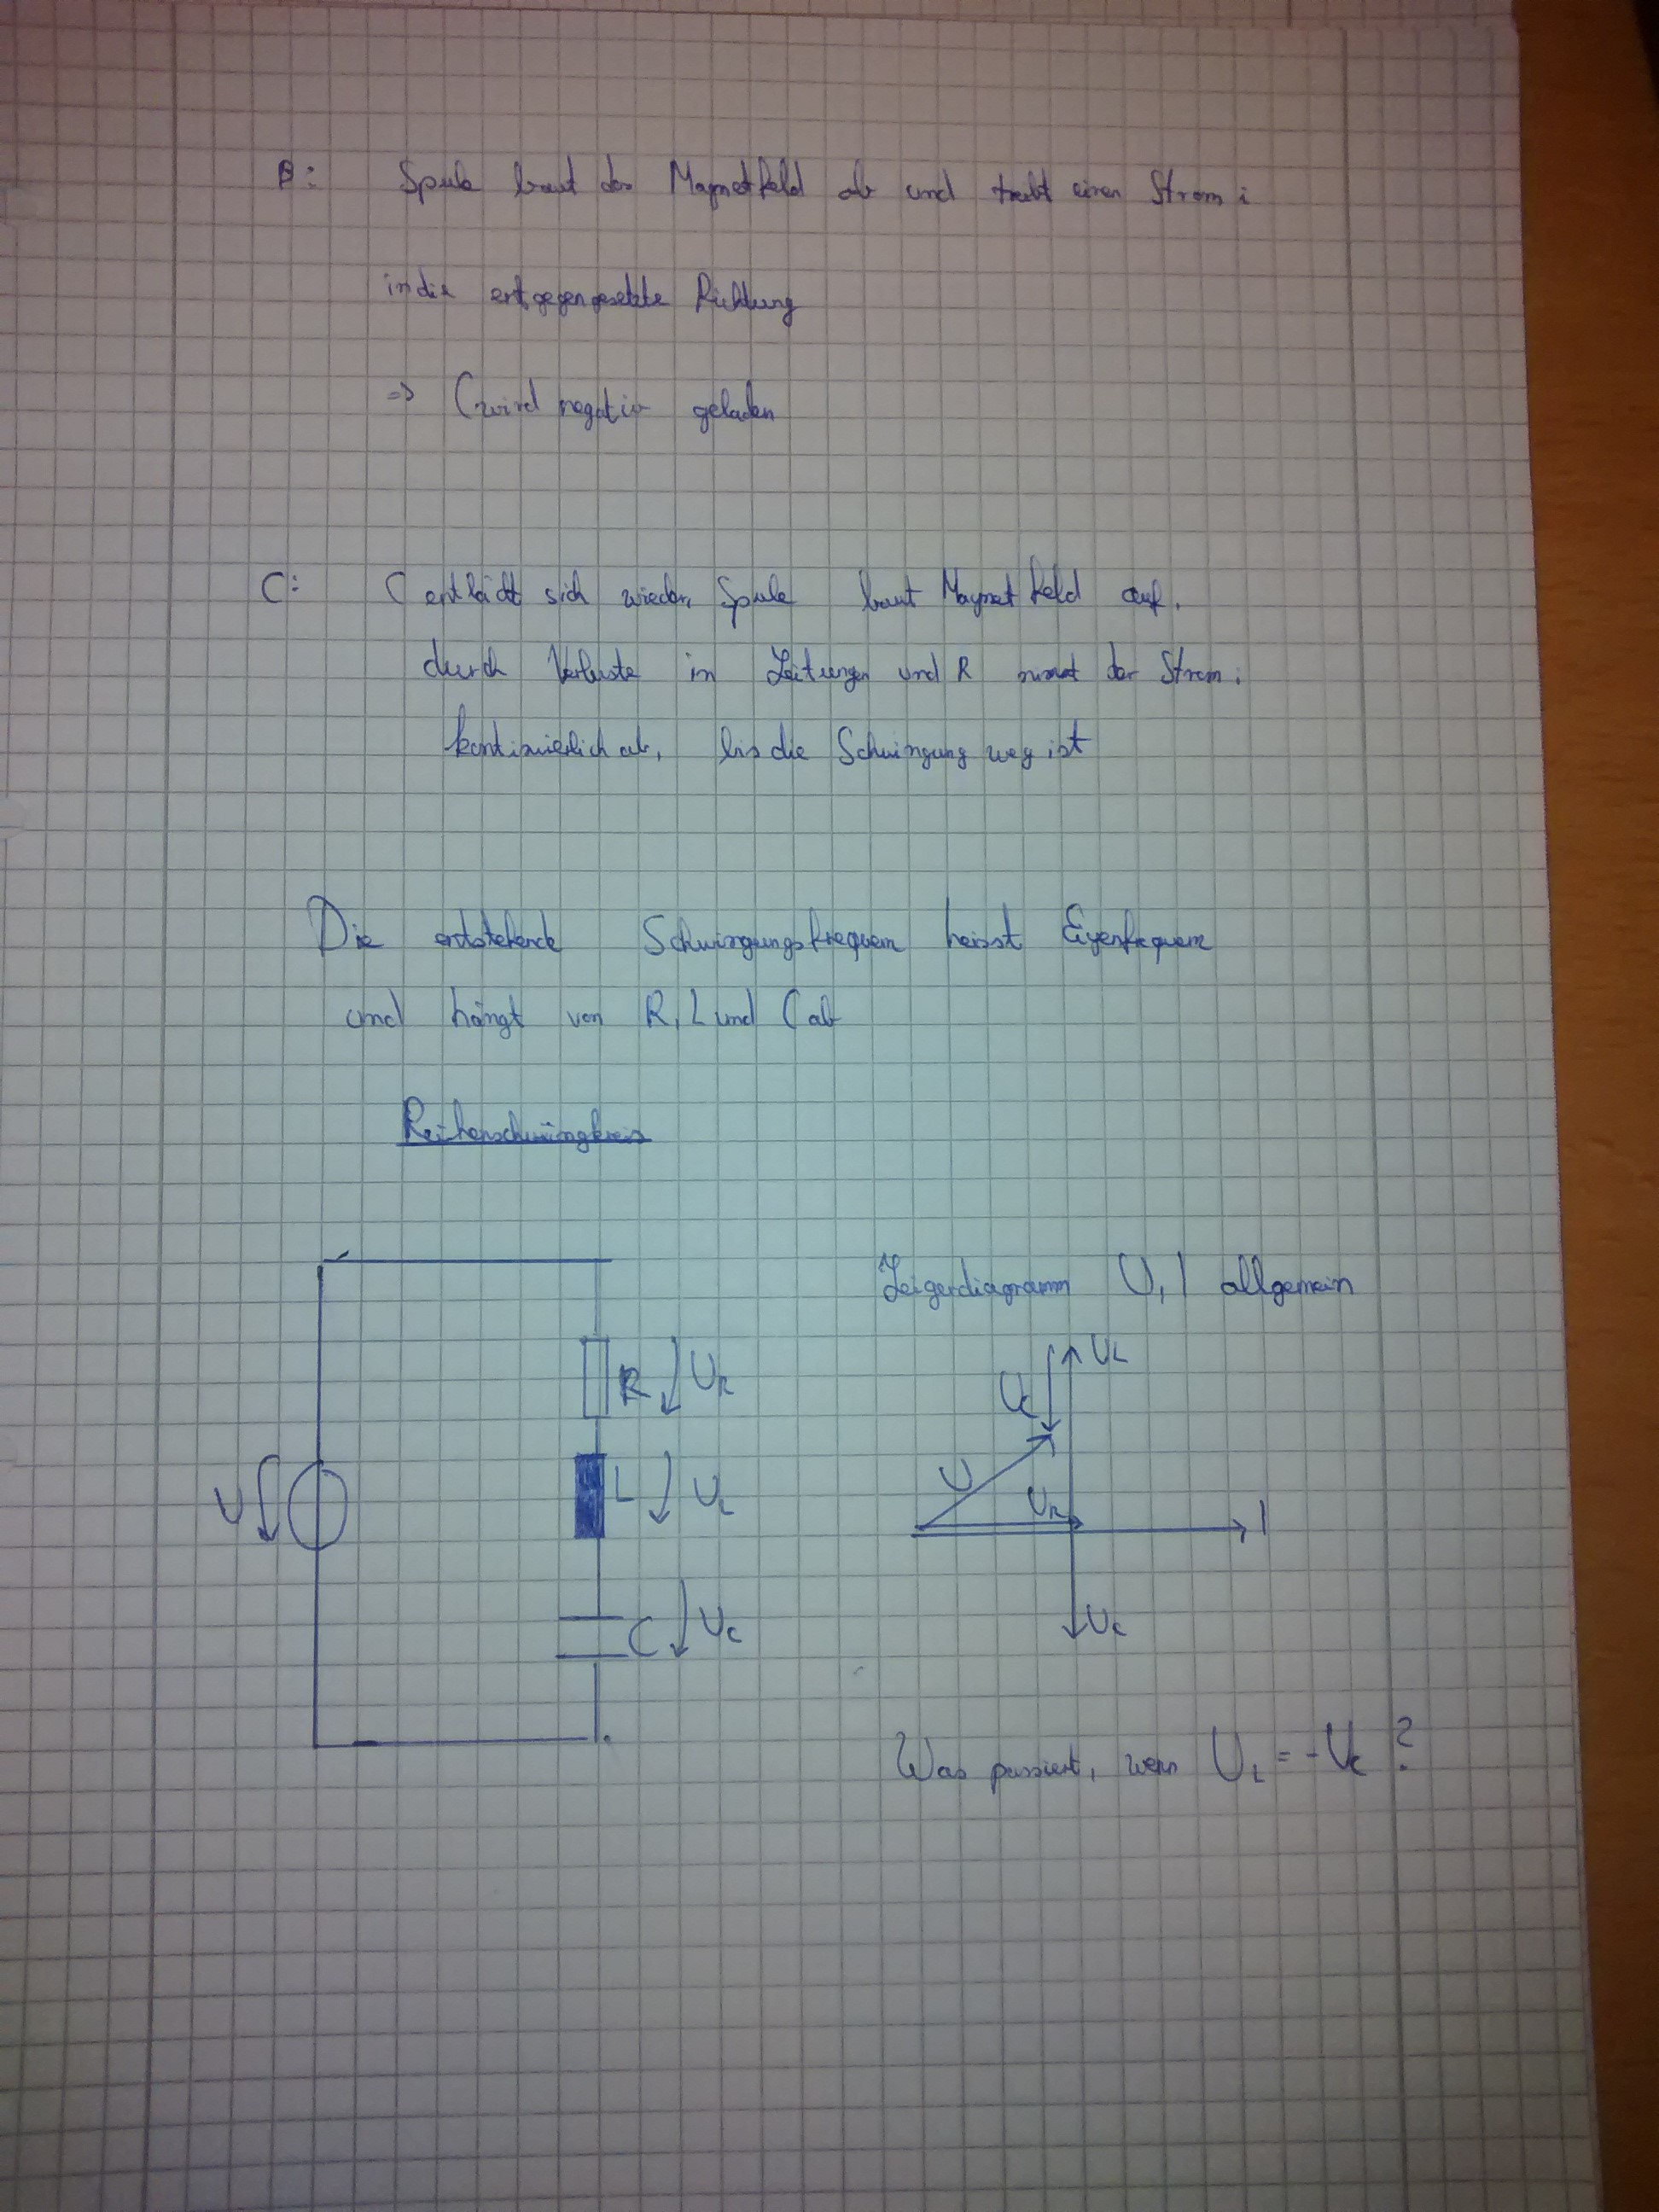 B: Spule baut das Magnetfeld ab und treibt einen Strom i
in die entgegengesetzte Richtung
=> C wird negativ geladen
C: C entlädt sich wieder, Spule baut Magnetfeld auf.
durch Verluste in Leitungen und R nimmt der Strom i
kontinuierlich ab, bis die Schwingung weg ist
Die entstehende Schwingungsfrequenz heisst Eigenfrequenz
und hängt von R, L und C ab
Reihenschwingkreis
Zeigerdiagramm U, I allgemein
R U_R
L U_L
C U_C
U
U_L
U_C
U
U_R
I
U_C
Was passiert, wenn U_L = -U_C ?